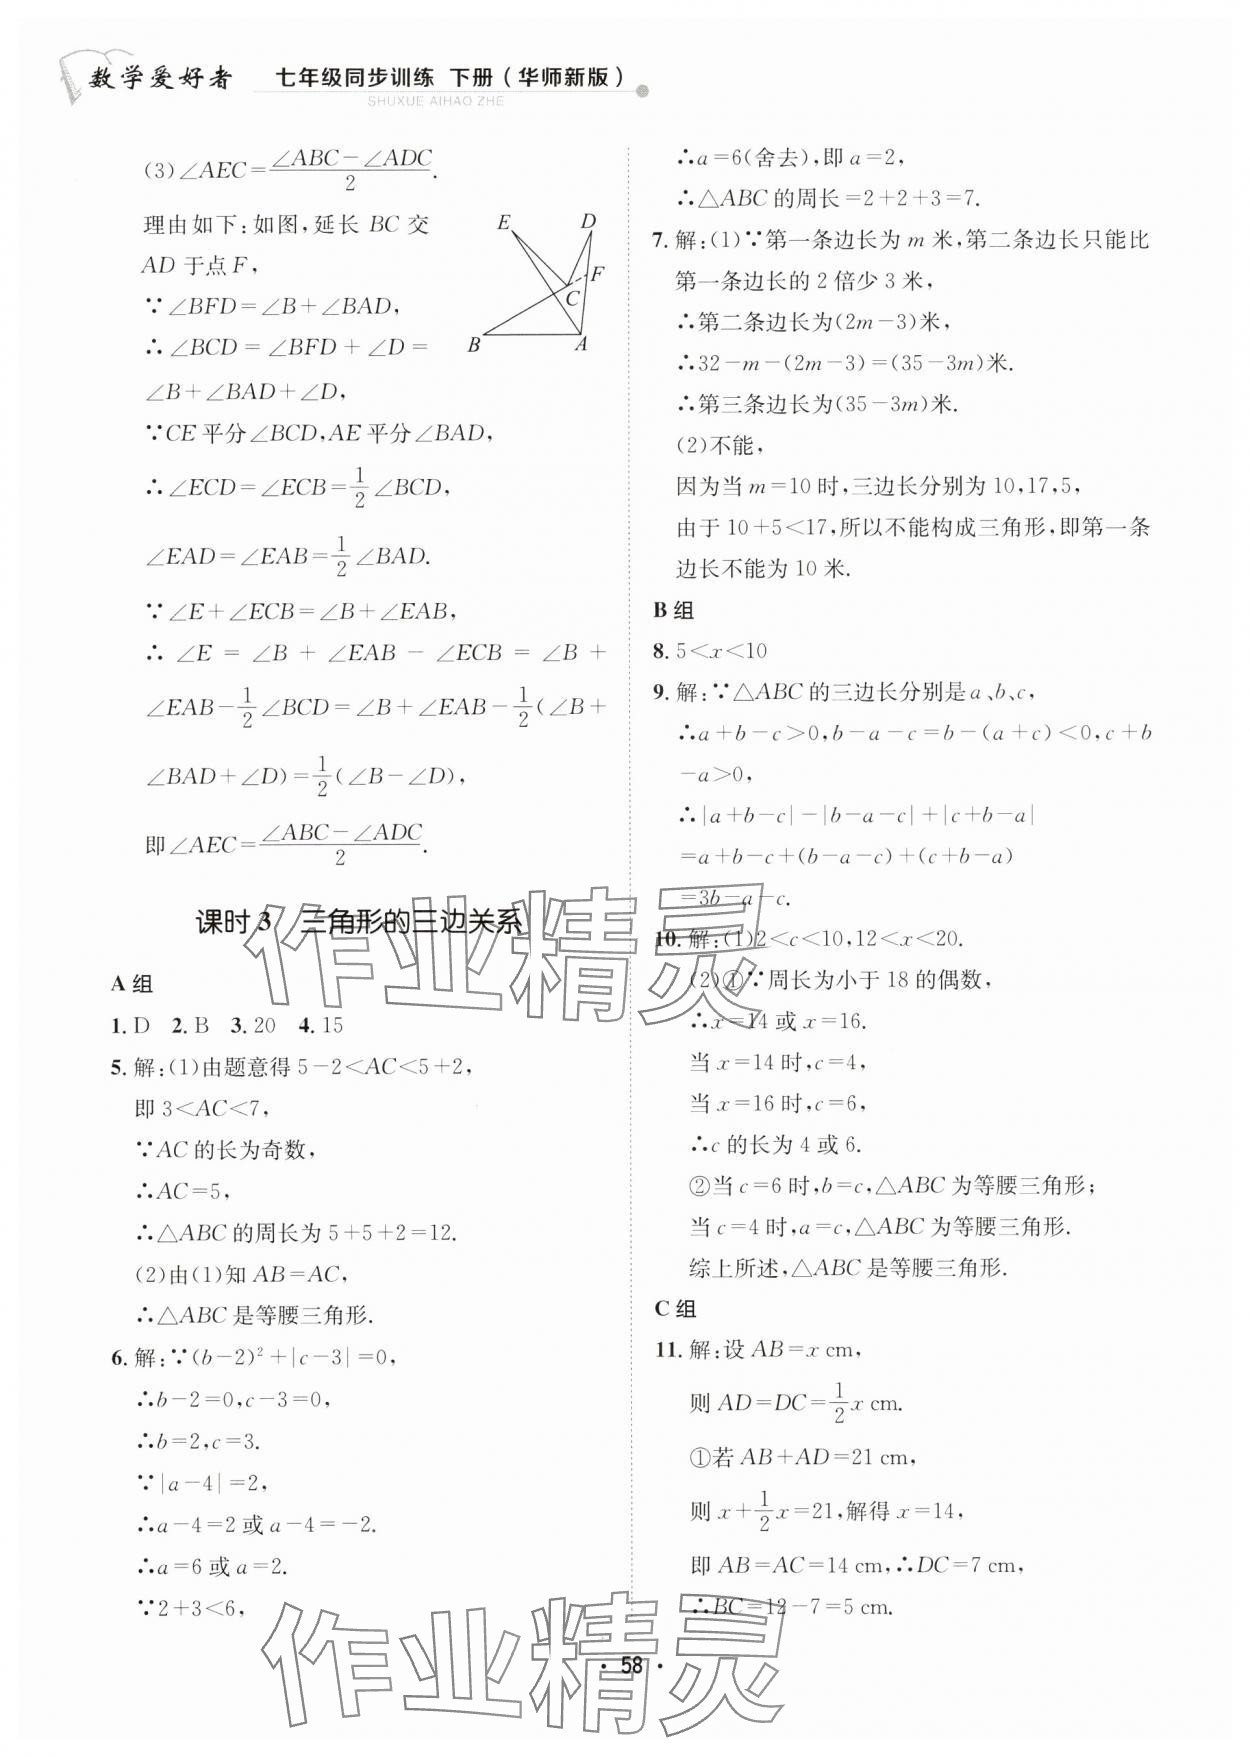 数学爱好者 七年级同步训练 下册(华师新版)
SHUXUE AIHAO ZHE
(3)∠AEC=(∠ABC-∠ADC)/2.
理由如下:如图,延长 BC 交
AD 于点 F,
∵∠BFD=∠B+∠BAD,
∴∠BCD=∠BFD+∠D=
∠B+∠BAD+∠D,
∵CE 平分∠BCD,AE 平分∠BAD,
∴∠ECD=∠ECB=1/2∠BCD,
∠EAD=∠EAB=1/2∠BAD.
∵∠E+∠ECB=∠B+∠EAB,
∴∠E=∠B+∠EAB-∠ECB=∠B+
∠EAB-1/2∠BCD=∠B+∠EAB-1/2(∠B+
∠BAD+∠D)=1/2(∠B-∠D),
即∠AEC=(∠ABC-∠ADC)/2.
E D
F
C
B A
课时 3 三角形的三边关系
A 组
1. D 2. B 3. 20 4. 15
5. 解:(1)由题意得 5-2<AC<5+2,
即 3<AC<7,
∵AC 的长为奇数,
∴AC=5,
∴△ABC 的周长为 5+5+2=12.
(2)由(1)知 AB=AC,
∴△ABC 是等腰三角形.
6. 解:∵(b-2)²+|c-3|=0,
∴b-2=0,c-3=0.
∴b=2,c=3.
∵|a-4|=2,
∴a-4=2 或 a-4=-2.
∴a=6 或 a=2.
∵2+3<6,
∴a=6(舍去),即 a=2,
∴△ABC 的周长=2+2+3=7.
7. 解:(1)∵第一条边长为 m 米,第二条边长只能比
第一条边长的 2 倍少 3 米,
∴第二条边长为(2m-3)米,
∴32-m-(2m-3)=(35-3m)米.
∴第三条边长为(35-3m)米.
(2)不能,
因为当 m=10 时,三边长分别为 10,17,5,
由于 10+5<17,所以不能构成三角形,即第一条
边长不能为 10 米.
B 组
8. 5<x<10
9. 解:∵△ABC 的三边长分别是 a、b、c,
∴a+b-c>0,b-a-c=b-(a+c)<0,c+b
-a>0,
∴|a+b-c|-|b-a-c|+|c+b-a|
=a+b-c+(b-a-c)+(c+b-a)
=3b-a-c.
10. 解:(1)2<c<10,12<x<20.
(2)①∵周长为小于 18 的偶数,
∴x=14 或 x=16.
当 x=14 时,c=4,
当 x=16 时,c=6,
∴c 的长为 4 或 6.
②当 c=6 时,b=c,△ABC 为等腰三角形;
当 c=4 时,a=c,△ABC 为等腰三角形.
综上所述,△ABC 是等腰三角形.
C 组
11. 解:设 AB=x cm,
则 AD=DC=1/2x cm.
①若 AB+AD=21 cm,
则 x+1/2x=21,解得 x=14,
即 AB=AC=14 cm,∴DC=7 cm,
∴BC=12-7=5 cm.
作业精灵
作业精灵
· 58 ·